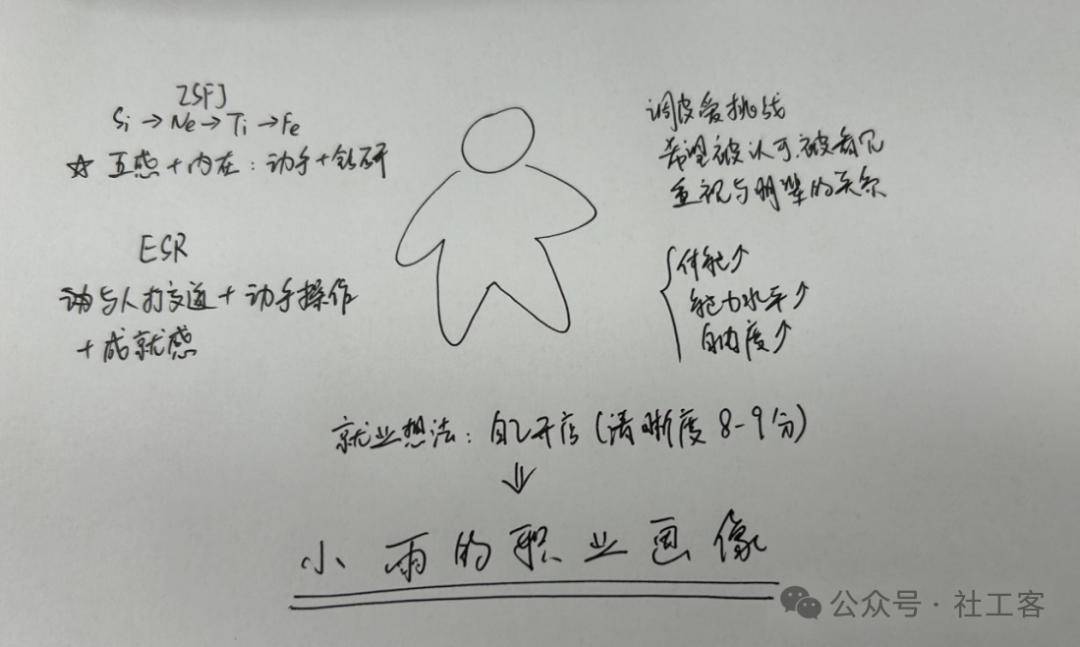 ISFJ
Si→Ne→Ti→Fe
☆ 五感+内在:动手+钻研
ESR
与人打交道+动手操作
+成就感
调皮爱挑战
希望被认可、被看见
重视与朋辈的关系
体能↑
能力水平↑
自由度↑
就业想法:自己开店(清晰度 8-9分)
↓
小雨的职业画像
公众号·社工客